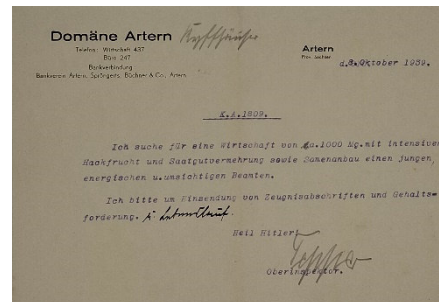 Domäne Artern Kyffhäuser
Telefon: Wirtschaft 437
Büro 247
Bankverbindung:
Bankverein Artern, Spröngerts, Büchner & Co., Artern
Artern
d. 8. Oktober 1939.
K.A.1809.
Ich suche für eine Wirtschaft von ca.1000 Mg. mit intensiver
Hackfrucht und Saatgutvermehrung sowie Samenanbau einen jungen,
energischen u.umsichtigen Beamten.
Ich bitte um Einsendung von Zeugnisabschriften und Gehalts=
forderung. & Lebenslauf.
Heil Hitler
Oberinspektor.